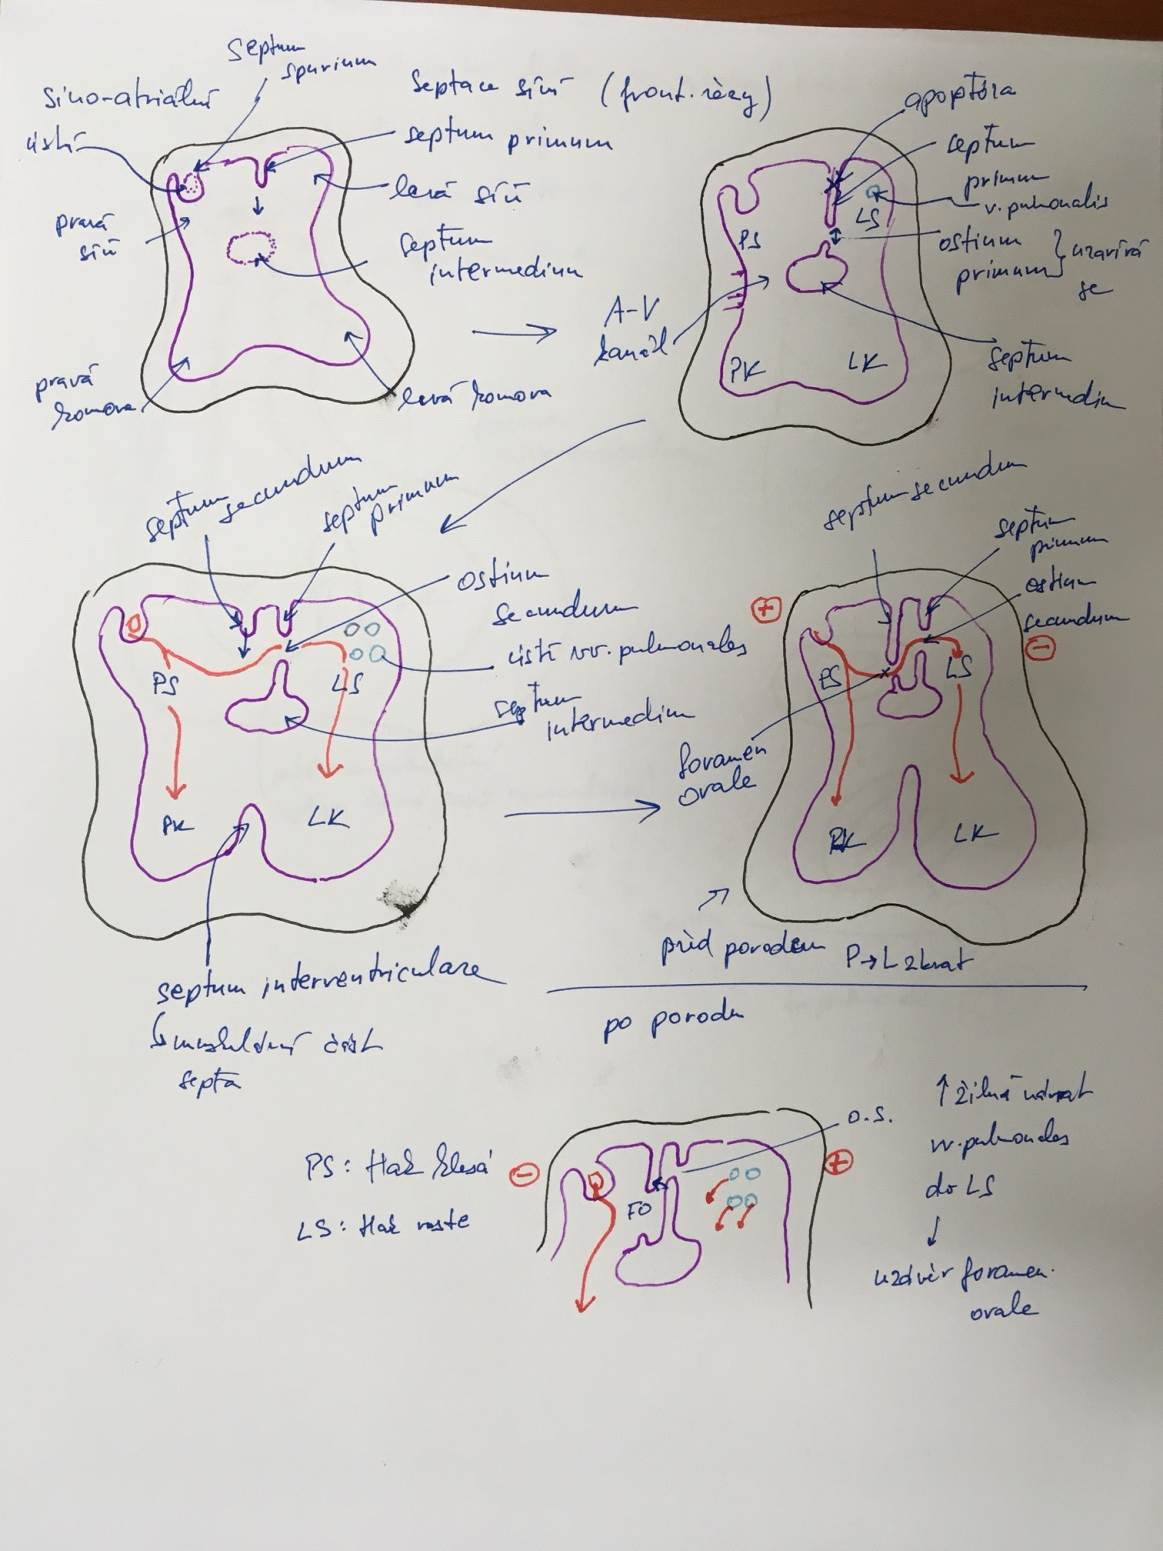 septum
spurium
sino-atriální
ústí
septace síní (front. řezy)
septum primum
levá síň
pravá
síň
septum
intermedium
pravá
komora
levá komora
apoptóza
septum
primum
v. pulmonalis
PS
LS
ostium
primum } uzavírá
se
A-V
kanál
PK
LK
septum
intermedium
septum
secundum
septum
primum
ostium
secundum
ústí vv. pulmonales
PS
LS
septum
intermedium
PK
LK
septum interventriculare
↳ muskulární část
septa
septum secundum
septum
primum
ostium
secundum
+
−
PS
LS
foramen
ovale
PK
LK
před porodem P→L zkrat
po porodu
PS: tlak klesá
LS: tlak roste
−
+
FO
o.s.
↑ žilní návrat
vv. pulmonales
do LS
↓
uzávěr foramen
ovale